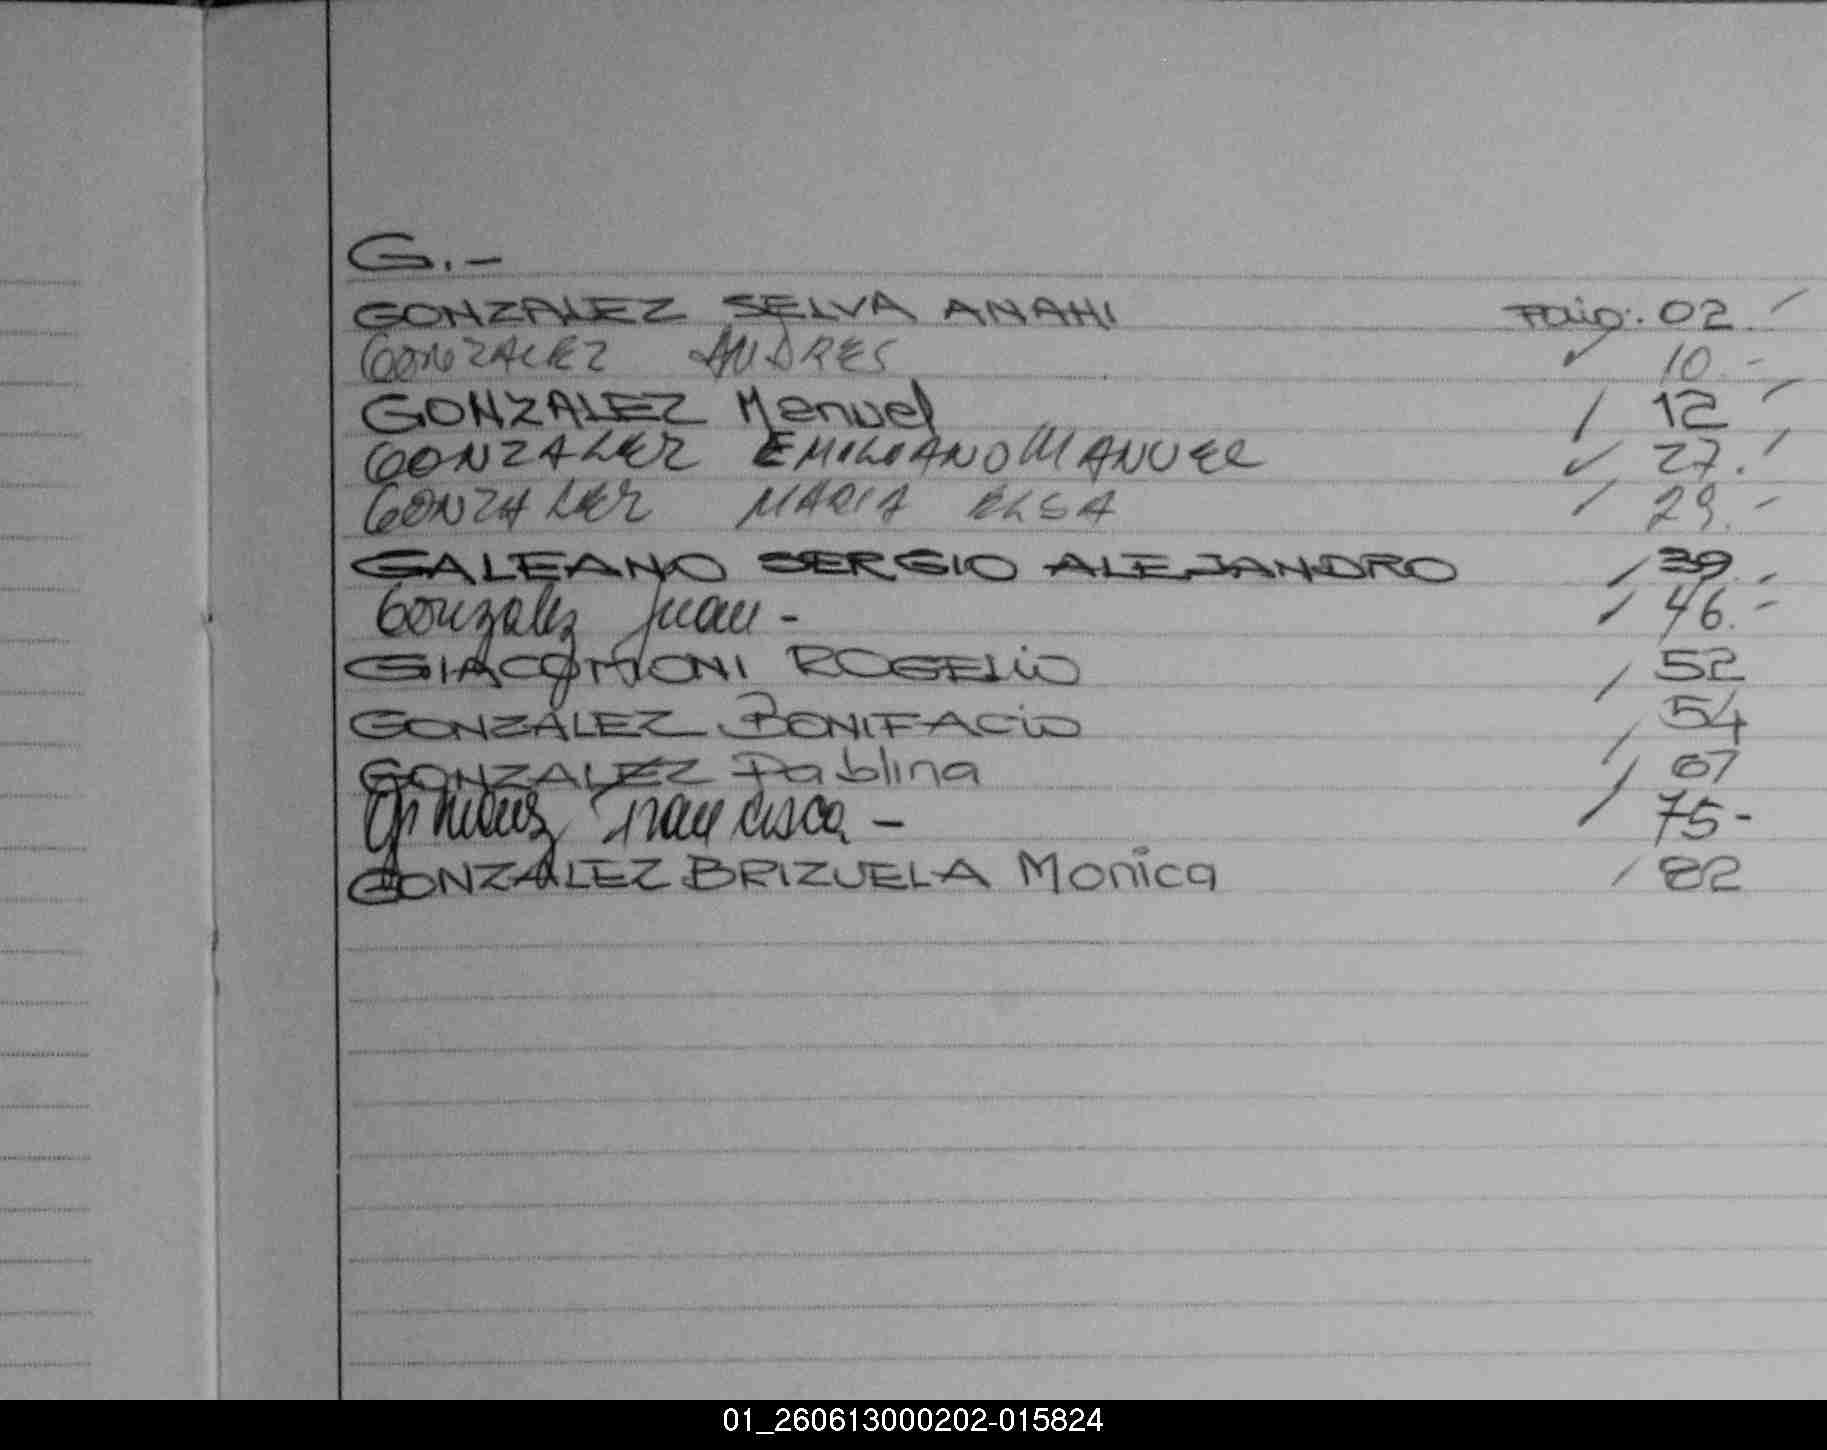 G.-
GONZALEZ SELVA ANAHI Folio: 02.
GONZALEZ ANDRES ✓ 10.-
GONZALEZ Manuel / 12
GONZALEZ EMILIANO MANUEL ✓ 27.
GONZALEZ MARIA ELSA / 29.-
GALEANO SERGIO ALEJANDRO / 39.-
Gonzalez Juan - / 46.-
GIACOMONI ROGELIO / 52
GONZÁLEZ BONIFACIO / 54
GONZALEZ Pablina / 67
Francisca - / 75-
GONZALEZ BRIZUELA Monica / 82
01_260613000202-015824